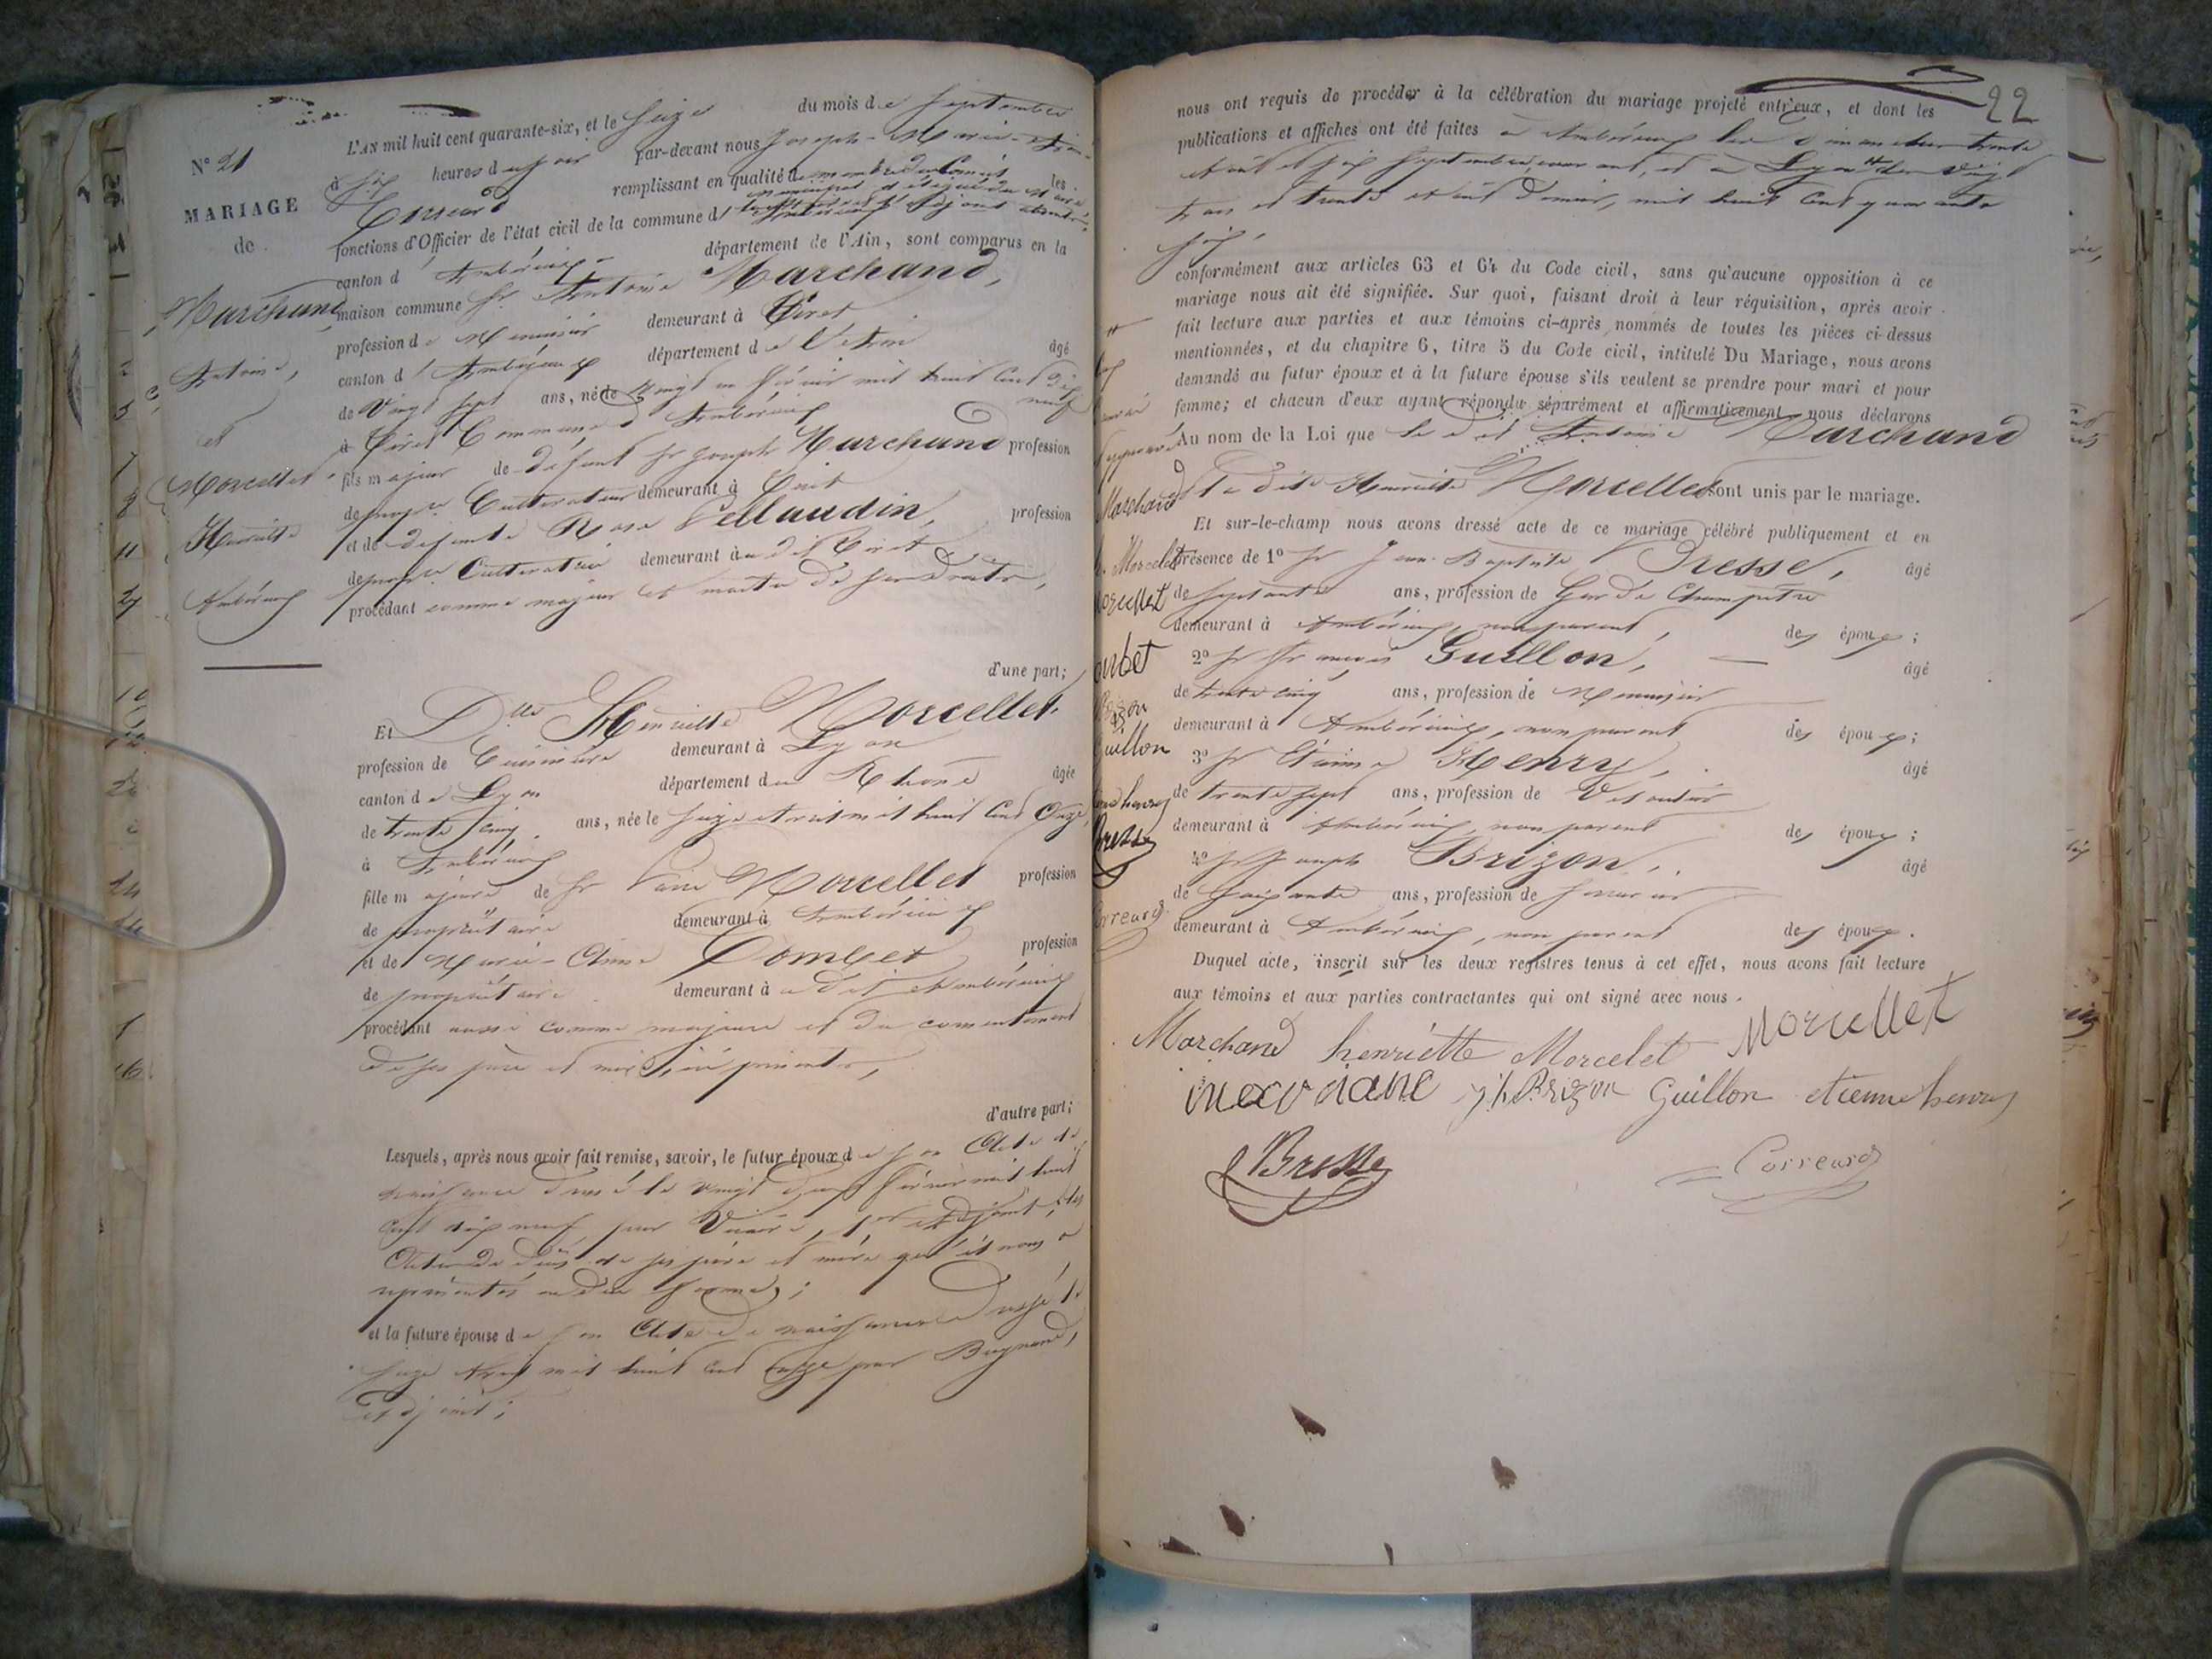 N° 21
MARIAGE
de
Marchand
Antoine,
et
Morcellet
Henriette
Ambérieux
L'AN mil huit cent quarante-six, et le seize du mois de septembre
à six heures du soir par-devant nous Joseph-Marie
Correard remplissant en qualité de membre du Conseil les
fonctions d'Officier de l'état civil de la commune d'Ambérieux
canton d'Ambérieux département de l'Ain, sont comparus en la
maison commune Sr Antoine Marchand,
profession de Menuisier demeurant à Tiret
canton d'Ambérieux département de l'Ain âgé
de vingt sept ans, né le vingt un février mil huit cent dix
neuf
à Tiret Commune d'Ambérieux
fils majeur de défunt Sr Joseph Marchand profession
de Cultivateur demeurant à Tiret
et de défunte Rose Vellaudin, profession
de Cultivatrice demeurant au dit Tiret
procédant comme majeur et maître de ses droits,
d'une part;
Et Dlle Henriette Morcellet,
profession de Cuisinière demeurant à Lyon
canton de Lyon département du Rhône âgée
de trente cinq ans, née le seize avril mil huit cent onze,
à Ambérieux
fille majeure de Sr Morcellet profession
de propriétaire demeurant à Ambérieux
et de Marie-Anne Combet profession
de propriétaire demeurant à dit Ambérieux
procédant aussi comme majeure et du consentement
de ses père et mère, ici présents,
d'autre part;
Lesquels, après nous avoir fait remise, savoir, le futur époux de son Acte de
naissance le vingt février mil huit
cent dix neuf par 1er Adjoint, des
Actes de décès de ses père et mère qu'il nous a
représentés en due forme;
et la future épouse de son Acte de naissance dressé le
seize Avril mil huit cent onze par Bugnand,
Adjoint;
22
nous ont requis de procéder à la célébration du mariage projeté entr'eux, et dont les
publications et affiches ont été faites à Ambérieux les dimanches trente
Août et six septembre courant, et à Lyon les vingt
trois et trente août dernier, mil huit cent quarante
six,
conformément aux articles 63 et 64 du Code civil, sans qu'aucune opposition à ce
mariage nous ait été signifiée. Sur quoi, faisant droit à leur réquisition, après avoir
fait lecture aux parties et aux témoins ci-après nommés de toutes les pièces ci-dessus
mentionnées, et du chapitre 6, titre 5 du Code civil, intitulé Du Mariage, nous avons
demandé au futur époux et à la future épouse s'ils veulent se prendre pour mari et pour
femme; et chacun d'eux ayant répondu séparément et affirmativement, nous déclarons
Au nom de la Loi que le dit Antoine Marchand
et la dite Henriette Morcellet sont unis par le mariage.
Et sur-le-champ nous avons dressé acte de ce mariage célébré publiquement et en
présence de 1° Sr Jean-Baptiste Bresse, âgé
de septante ans, profession de Garde Champêtre
demeurant à Ambérieux, non parent, des époux;
2° Sr François Guillon, âgé
de trente cinq ans, profession de Menuisier
demeurant à Ambérieux, non parent des époux;
3° Sr Étienne Henry, âgé
de trente sept ans, profession de
demeurant à Ambérieux, non parent des époux;
4° Sr Joseph Brizon, âgé
de soixante ans, profession de
demeurant à Ambérieux, non parent des époux.
Duquel acte, inscrit sur les deux registres tenus à cet effet, nous avons fait lecture
aux témoins et aux parties contractantes qui ont signé avec nous.
Marchand henriette Morcelet Morcellet
Brizon Guillon etienne henry
Bresse Correard